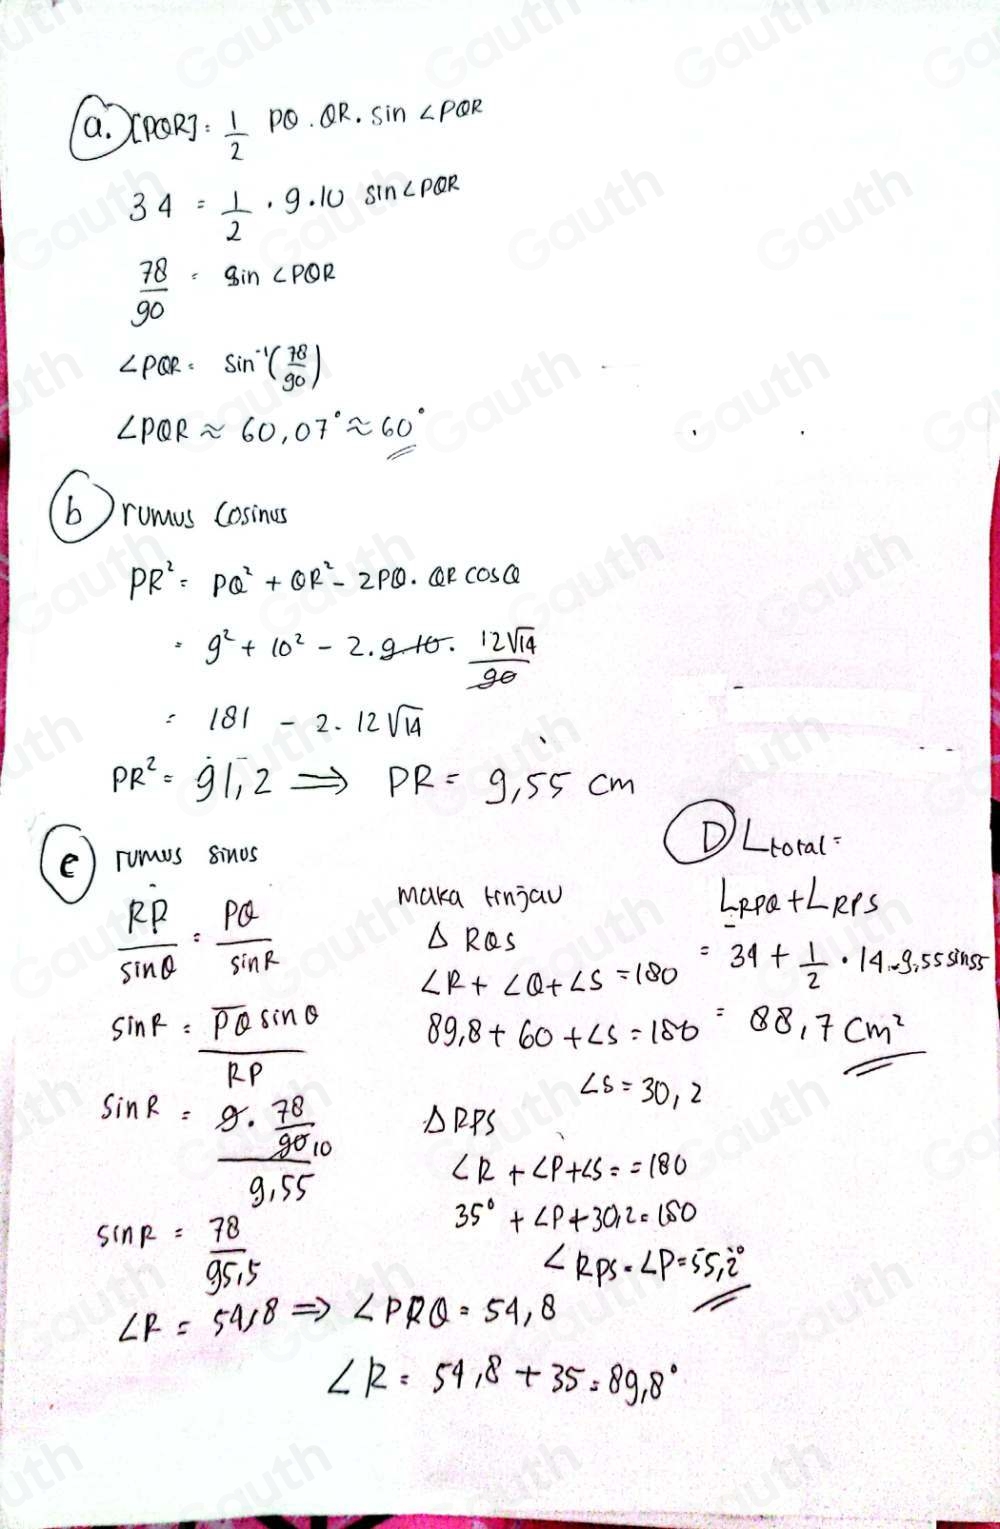 a. [PQR] = 1/2 PQ . QR . sin ∠PQR
34 = 1/2 . 9.10 sin ∠PQR
78/90 = sin ∠PQR
∠PQR = sin⁻¹(78/90)
∠PQR ≈ 60,07° ≈ 60°
b rumus Cosinus
PR² = PQ² + QR² - 2PQ. QR cos Q
= 9² + 10² - 2.9.10. 12√14/90
= 181 - 2. 12√14
PR² = 91,2 ⟹ PR = 9,55 cm
c rumus sinus
RP/sin Q = PQ/sin R
sin R = PQ sin Q/RP
sin R = 9. 78/90 10/9,55
sin R = 78/95,5
∠R = 54,8 ⟹ ∠PRQ = 54,8
∠R = 54,8 + 35 = 89,8°
maka
Δ RQS
∠R + ∠Q + ∠S = 180
89,8 + 60 + ∠S = 180
∠S = 30,2
Δ RPS
∠R + ∠P + ∠S = = 180
35° + ∠P + 30,2 = 180
∠RPS = ∠P = 55,2°
D Ltotal =
LRPQ + LRPS
= 34 + 1/2 . 14 . 9,55 sin 55
= 88,7 cm²
Gauth